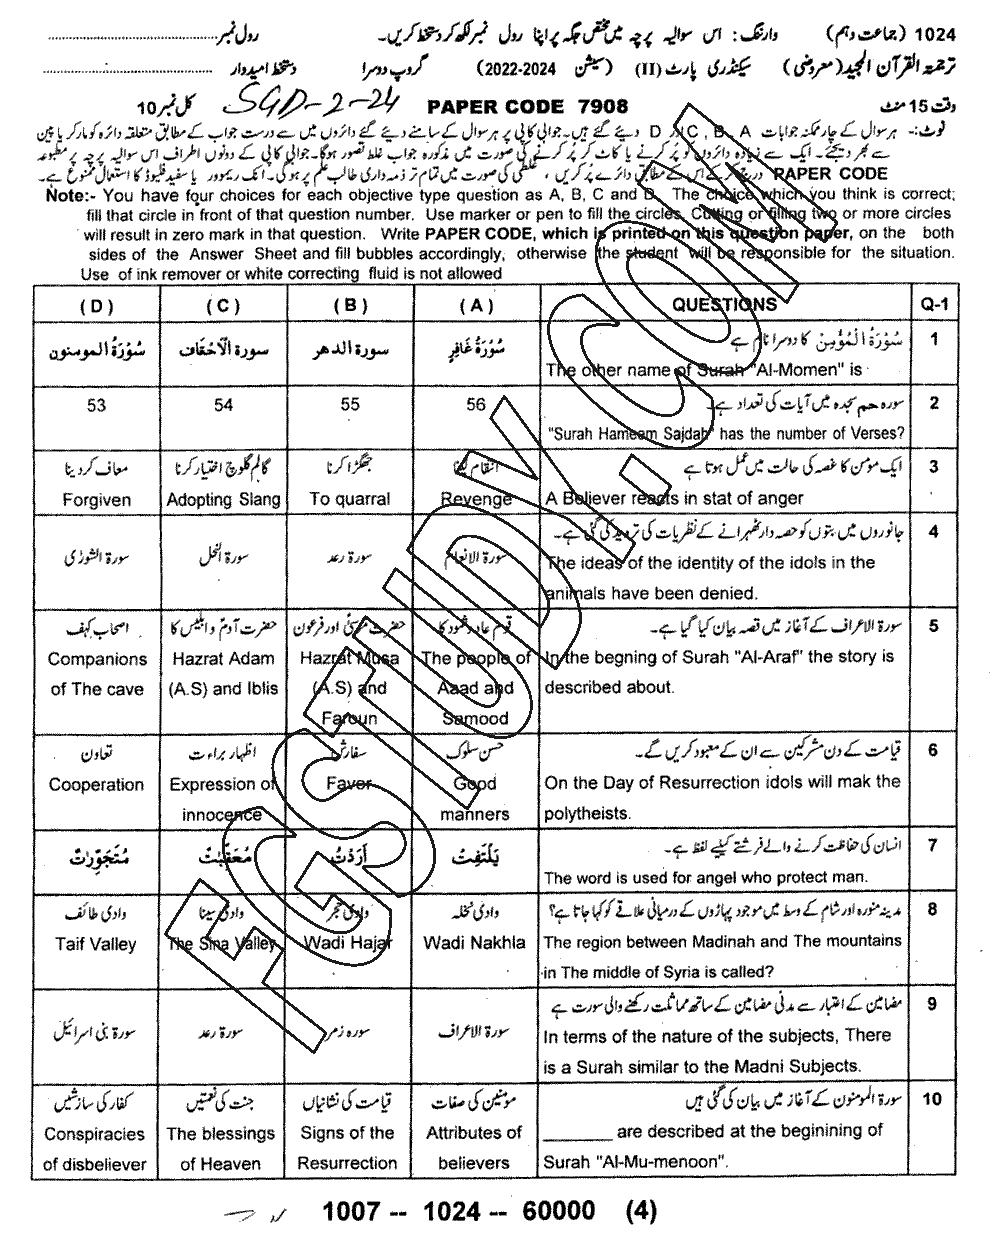 1024 (جماعت دہم) وارننگ: اس سوالیہ پرچہ میں مختص جگہ پر اپنا رول نمبر لکھ کر دستخط کریں۔ رول نمبر
ترجمۃ القرآن المجید (معروضی) سیکنڈری پارٹ (II) (سیشن 2022-2024) گروپ دوسرا دستخط امیدوار
وقت 15 منٹ PAPER CODE 7908 SGD-2-24 کل نمبر 10
نوٹ:- ہر سوال کے چار ممکنہ جوابات A ، B ، C اور D دیئے گئے ہیں۔ جوابی کاپی پر ہر سوال کے سامنے دیئے گئے دائروں میں سے درست جواب کے مطابق متعلقہ دائرہ کو مارکر یا پین
سے بھر دیجئے۔ ایک سے زیادہ دائروں کو پُر کرنے یا کاٹ کر پُر کرنے کی صورت میں مذکورہ جواب غلط تصور ہوگا۔ جوابی کاپی کے دونوں اطراف اس سوالیہ پرچہ پر مطبوعہ
PAPER CODE درج کر کے اس کے مطابق دائرے پر کریں، غلطی کی صورت میں تمام تر ذمہ داری طالب علم پر ہوگی۔ انک ریموور یا سفید فلیوڈ کا استعمال ممنوع ہے۔
Note:- You have four choices for each objective type question as A, B, C and D. The choice which you think is correct;
fill that circle in front of that question number. Use marker or pen to fill the circles. Cutting or filling two or more circles
will result in zero mark in that question. Write PAPER CODE, which is printed on this question paper, on the both
sides of the Answer Sheet and fill bubbles accordingly, otherwise the student will be responsible for the situation.
Use of ink remover or white correcting fluid is not allowed
(D) (C) (B) (A) QUESTIONS Q-1
سُوْرَةُ المومنون سورة الْاَحْقَاف سورة الدهر سُوْرَةُ غَافِرٍ سُوْرَةُ الْمُؤْمِنْ کا دوسرا نام ہے 1
The other name of Surah "Al-Momen" is
53 54 55 56 سورہ حم سجدہ میں آیات کی تعداد ہے۔ 2
"Surah Hameem Sajdah" has the number of Verses?
معاف کر دینا گالم گلوچ اختیار کرنا جھگڑا کرنا انتقام لینا ایک مومن کا غصہ کی حالت میں عمل ہوتا ہے 3
Forgiven Adopting Slang To quarral Revenge A Believer reacts in stat of anger
سورۃ الشوریٰ سورۃ النحل سورۃ رعد سورۃ الانعام جانوروں میں بتوں کو حصہ دار ٹھہرانے کے نظریات کی تردید کی گئی ہے۔ 4
The ideas of the identity of the idols in the
animals have been denied.
اصحاب کہف حضرت آدمؑ و ابلیس کا حضرت موسیٰؑ اور فرعون قوم عاد و ثمود کا سورۃ الاعراف کے آغاز میں قصہ بیان کیا گیا ہے۔ 5
Companions Hazrat Adam Hazrat Musa The people of In the begning of Surah "Al-Araf" the story is
of The cave (A.S) and Iblis (A.S) and Aaad and described about.
Faroun Samood
تعاون اظہار براءت سفارش حسن سلوک قیامت کے دن مشرکین سے ان کے معبود کریں گے۔ 6
Cooperation Expression of Favor Good On the Day of Resurrection idols will mak the
innocence manners polytheists.
مُتَجٰوِرٰتٌ مُعَقِّبٰتٌ اَرَدْتُ يَلْتَفِتْ انسان کی حفاظت کرنے والے فرشتے کیلئے لفظ ہے۔ 7
The word is used for angel who protect man.
وادی طائف وادی سینا وادی حجر وادی نخلہ مدینہ منورہ اور شام کے وسط میں موجود پہاڑوں کے درمیانی علاقے کو کہا جاتا ہے؟ 8
Taif Valley The Sina Valley Wadi Hajar Wadi Nakhla The region between Madinah and The mountains
in The middle of Syria is called?
سورۃ بنی اسرائیل سورۃ رعد سورہ زمر سورۃ الاعراف مضامین کے اعتبار سے مدنی مضامین کے ساتھ مماثلت رکھنے والی سورت ہے 9
In terms of the nature of the subjects, There
is a Surah similar to the Madni Subjects.
کفار کی سازشیں جنت کی نعمتیں قیامت کی نشانیاں مومنین کی صفات سورۃ المومنون کے آغاز میں بیان کی گئی ہیں 10
Conspiracies The blessings Signs of the Attributes of ________ are described at the beginining of
of disbeliever of Heaven Resurrection believers Surah "Al-Mu-menoon".
1007 -- 1024 -- 60000 (4)
FGSTUDY.COM